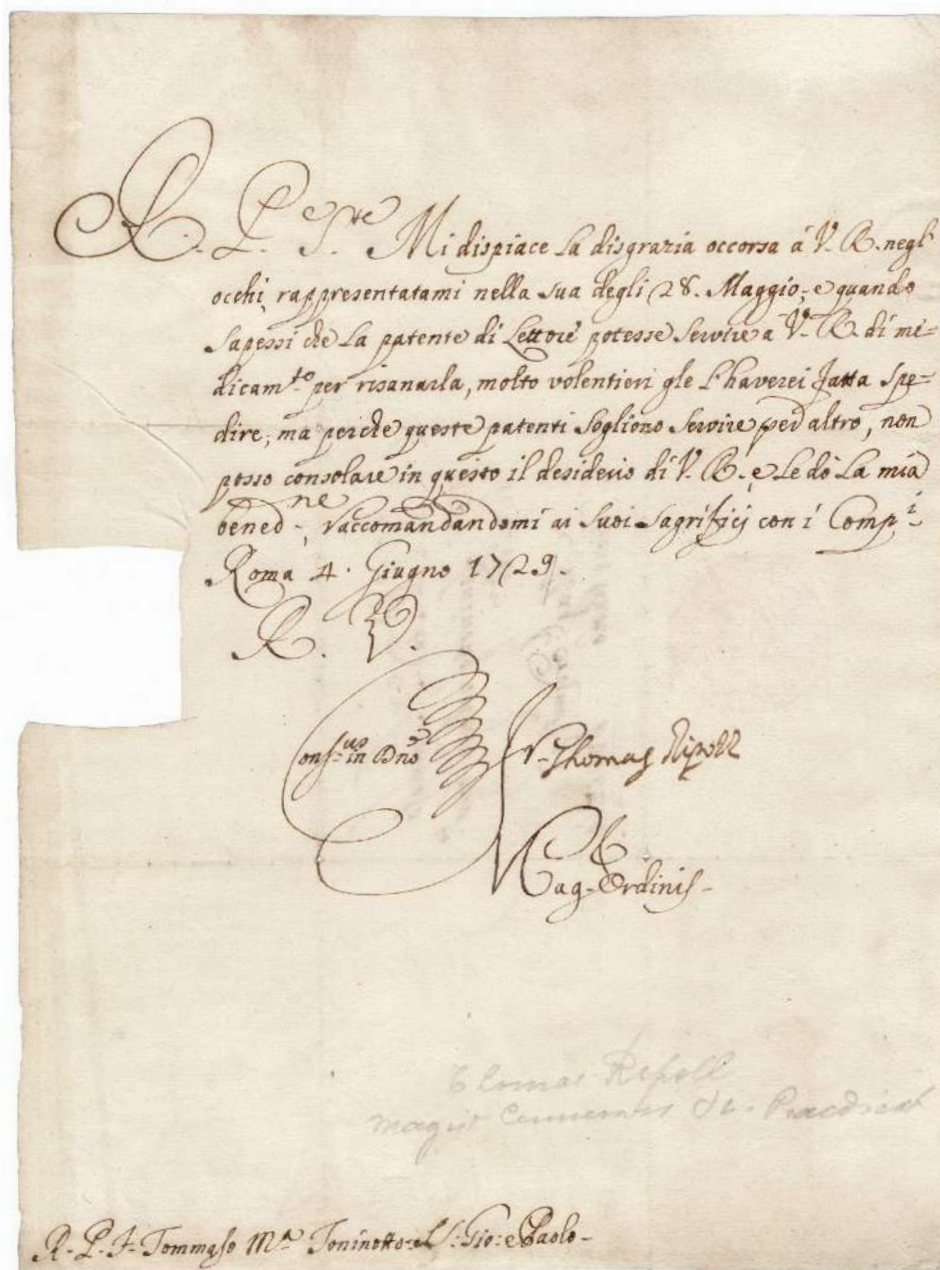 R. P. S.te Mi dispiace la disgrazia occorsa á V. R. negl'
occhi, rappresentatami nella sua degli 28. Maggio, e quando
sapessi che la patente di Lettore potesse servire a V. R. di me=
dicam.to per risanarla, molto volentieri gle l'haverei fatta spe=
dire, ma perche queste patenti sogliono servire per altro, non
posso consolare in questo il desiderio di V. R. e le dó la mia
bened.ne, raccomandandomi ai suoi sagrifizj con i Comp.i
Roma 4. Giugno 1729.
R. V.
Cons.us in Dno F. Thomas Ripoll
Mag. Ordinis.
Thomas Ripoll
R. P. F. Tommaso M.a Toninotto SS. Gio: e Paolo.